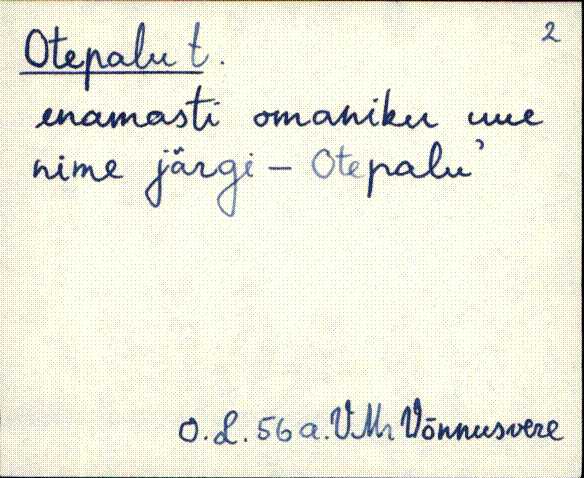 2
Otepalu t.
enamasti omaniku uue
nime järgi – Otepalu'
O.L. 56 a. VMr Võnnusvere